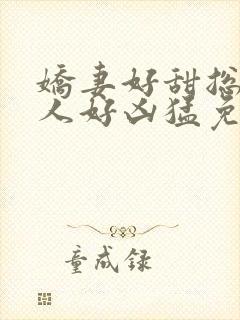 娇妻好甜总
人好凶猛免
童成录